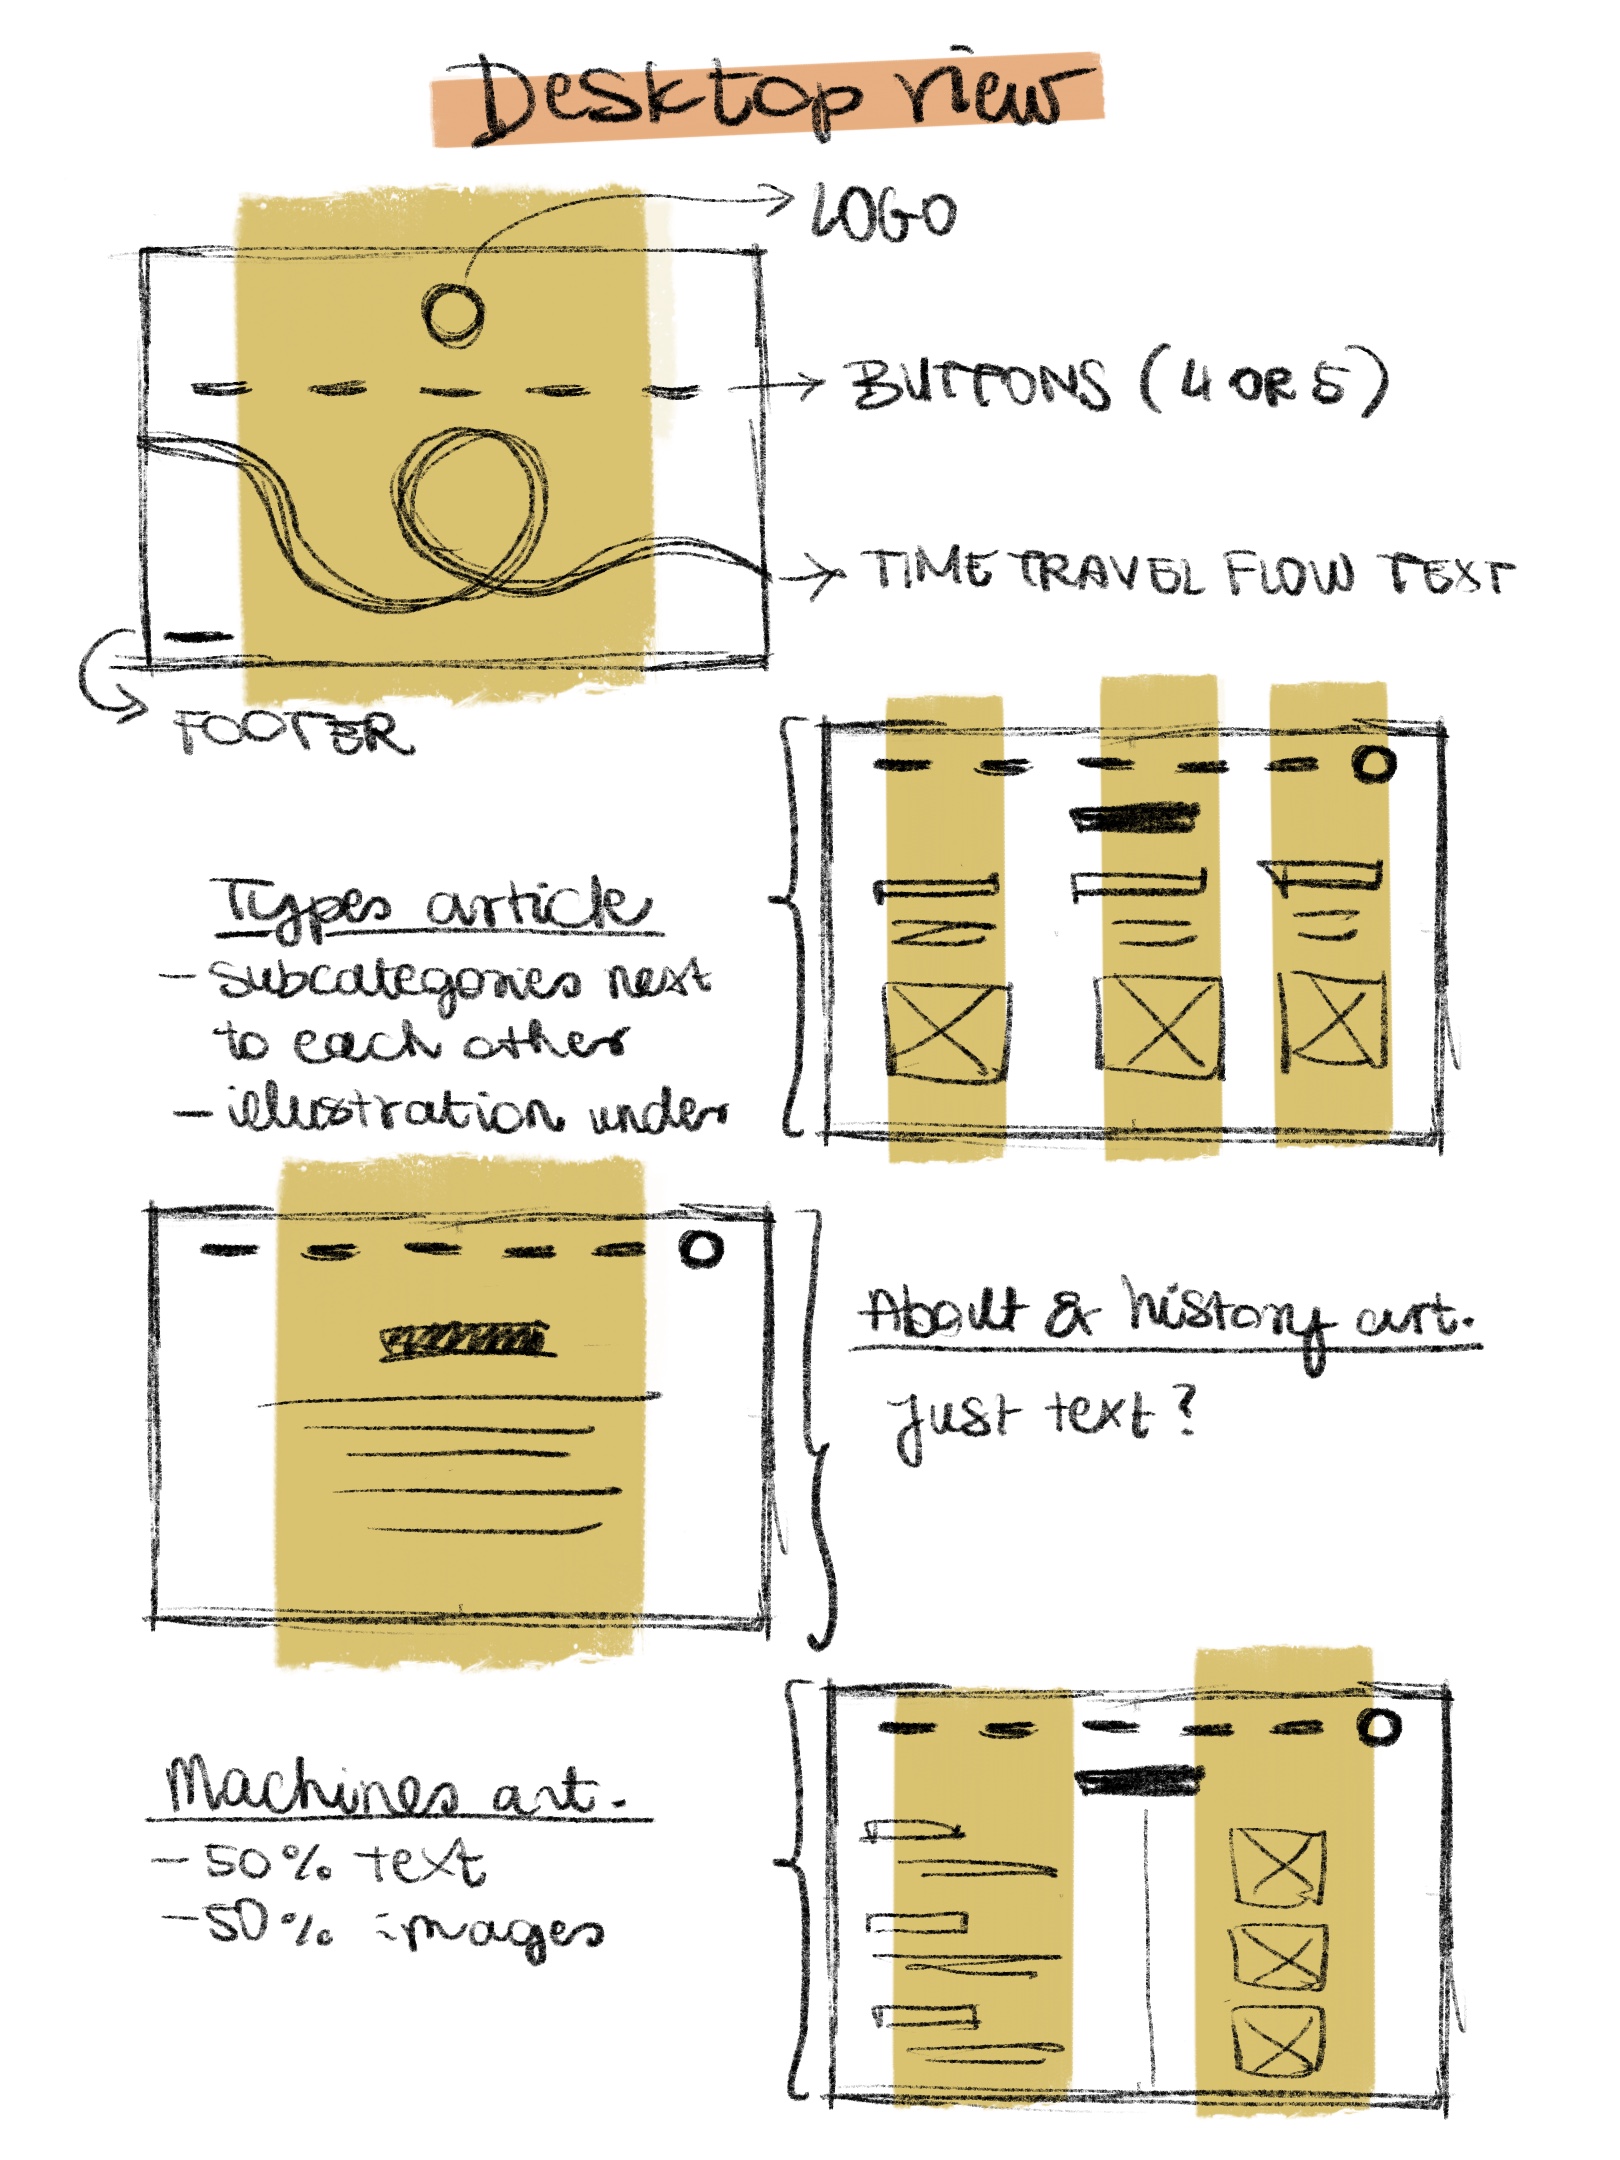 Desktop view
LOGO
BUTTONS (4 OR 5)
TIME TRAVEL FLOW TEXT
FOOTER
Types article
- subcategories next
to each other
- illustration under
About & history art.
just text?
Machines art.
- 50% text
- 50% images